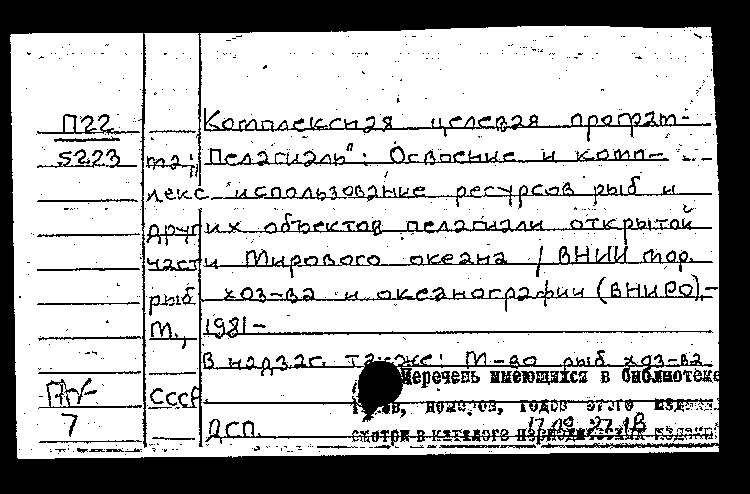 П22 Комплексная целевая програм-
5223 ма „Пелагиаль": Освоение и комп-
лекс. использование ресурсов рыб и
других объектов пелагиали открытой
части Мирового океана / ВНИИ мор.
рыб. хоз-ва и океанографии (ВНИРО),-
М., 1981-
В надзаг. также: М-во рыб. хоз-ва
СССР.
Перечень имеющихся в библиотеке
томов, номеров, годов этого издания
7 ДСП.
смотри в каталоге периодических издани